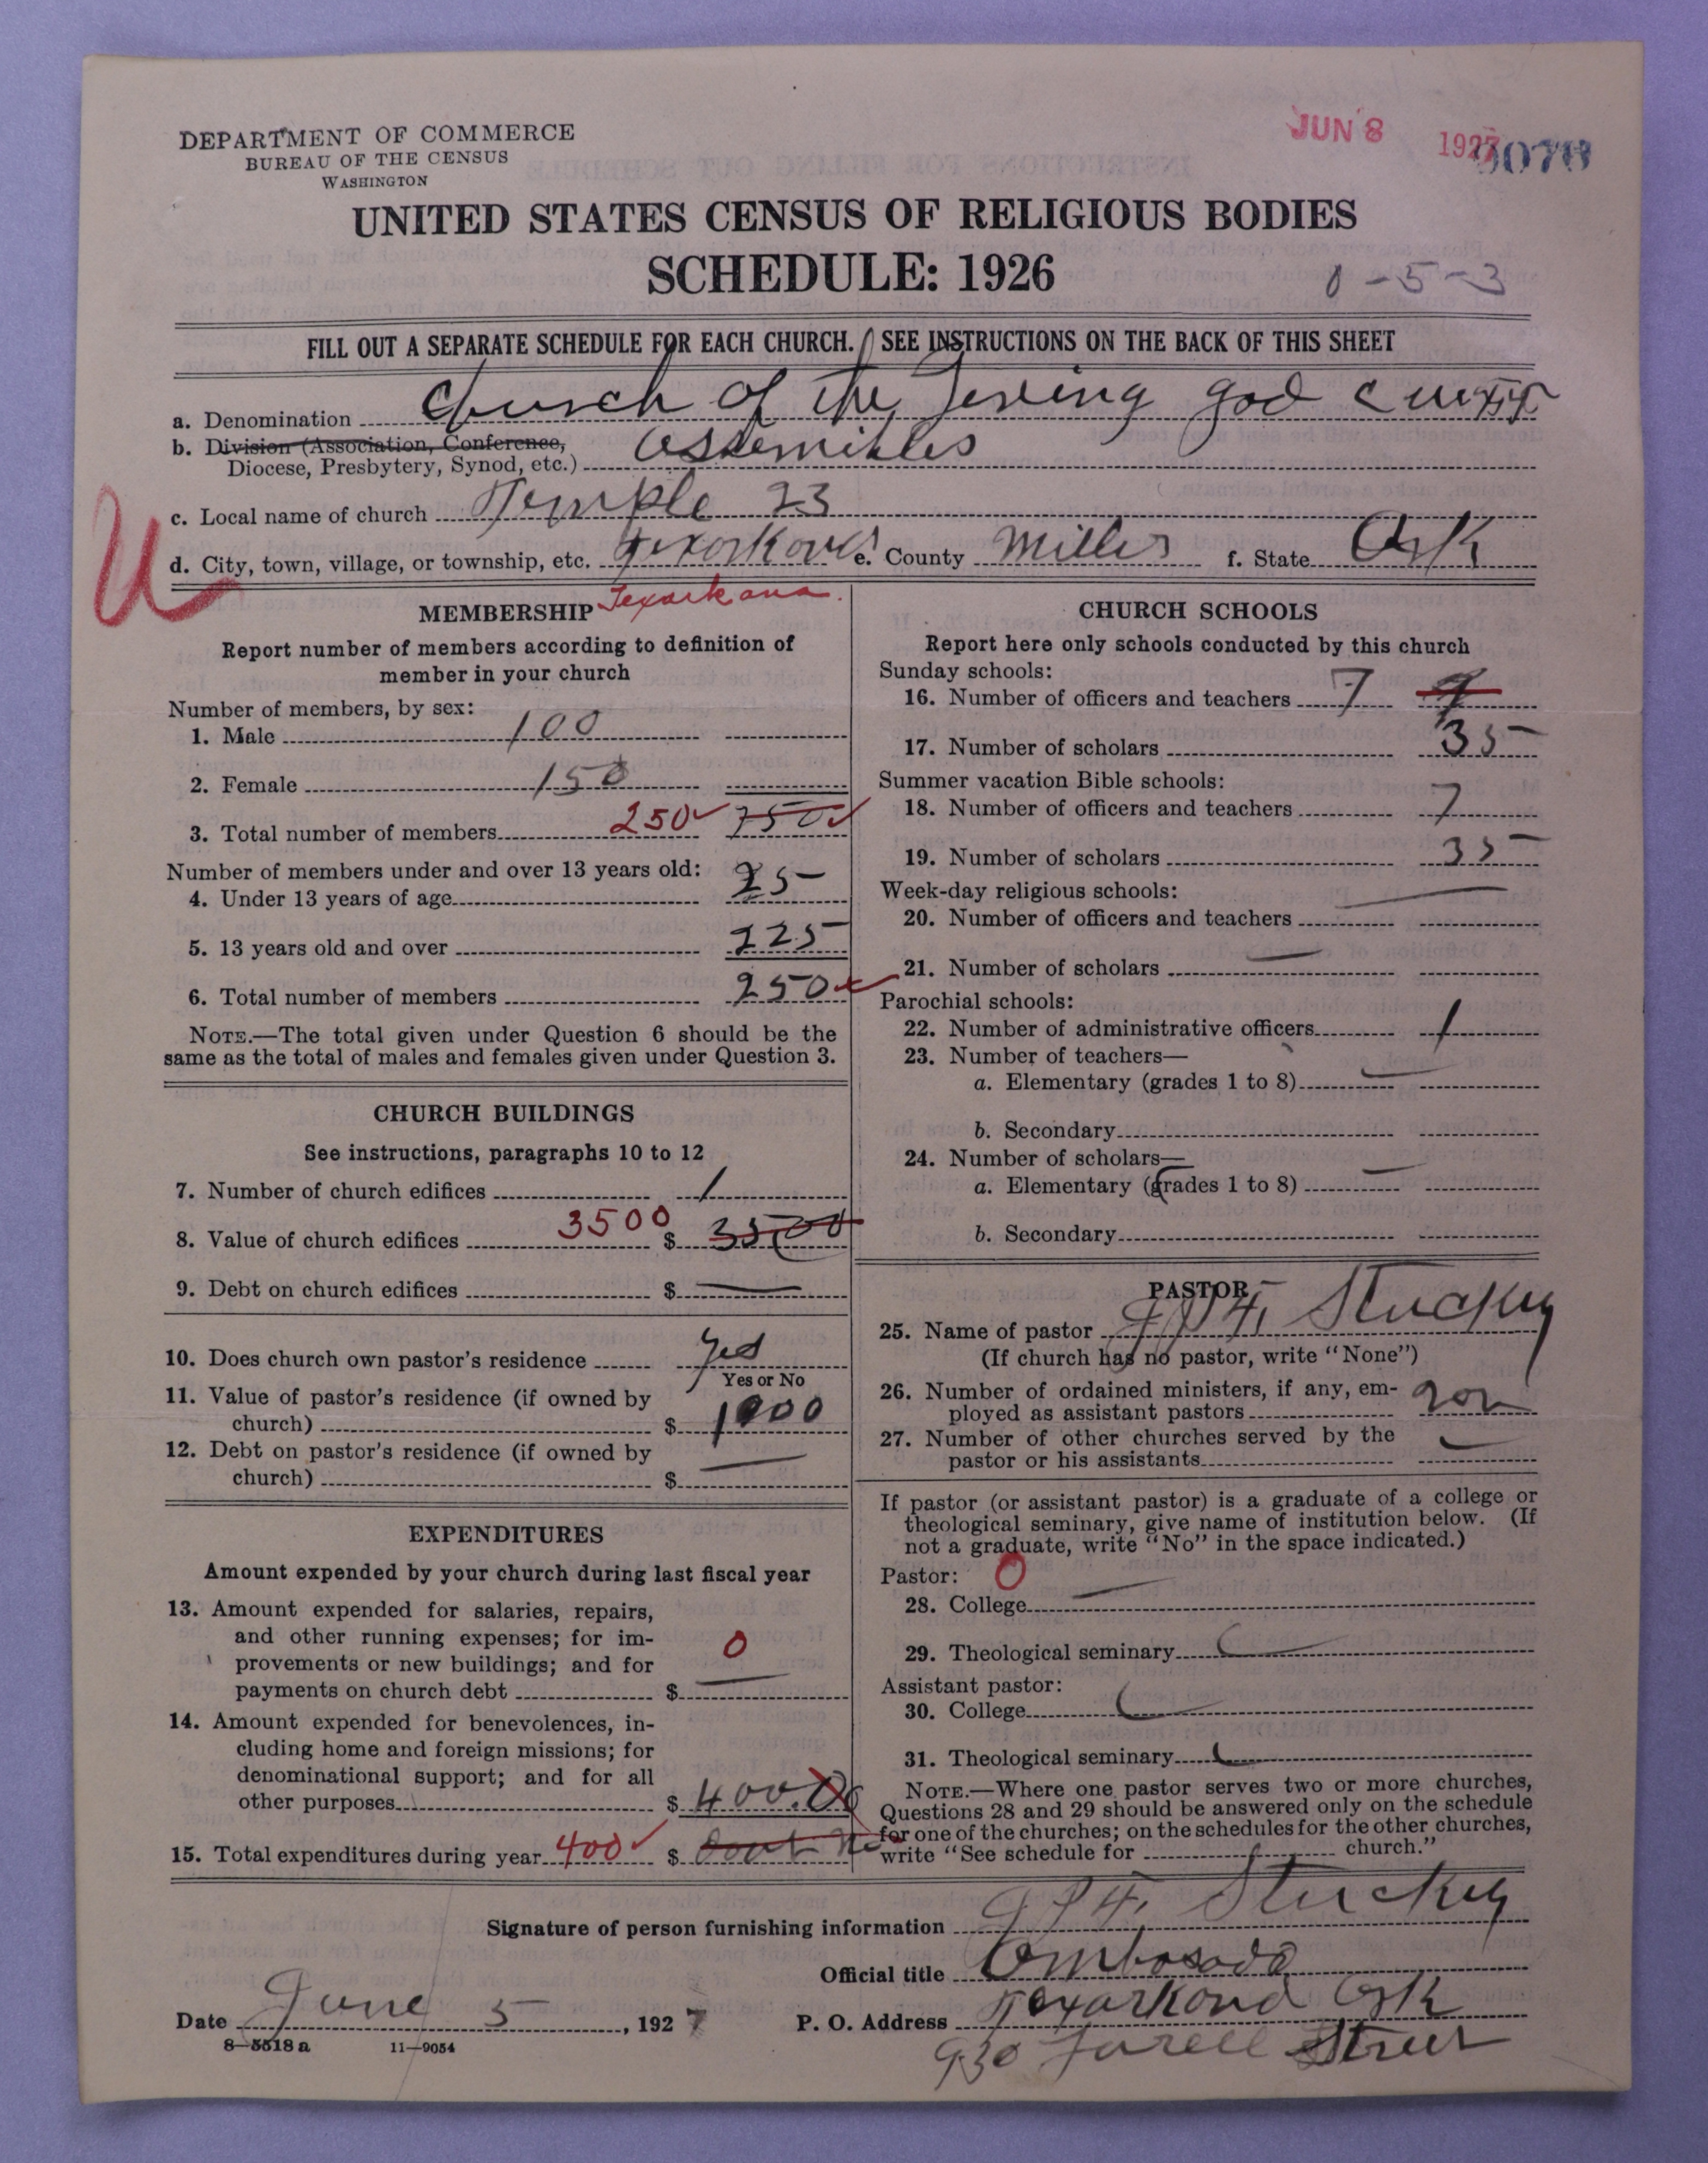 DEPARTMENT OF COMMERCE
BUREAU OF THE CENSUS
WASHINGTON
JUN 8 1927
UNITED STATES CENSUS OF RELIGIOUS BODIES
SCHEDULE: 1926
0-5-3
FILL OUT A SEPARATE SCHEDULE FOR EACH CHURCH. SEE INSTRUCTIONS ON THE BACK OF THIS SHEET
a. Denomination Church of the god
b. Division (Association, Conference,
Diocese, Presbytery, Synod, etc.)
c. Local name of church Temple 23
U
d. City, town, village, or township, etc. e. County Miller f. State Ark
Texarkana.
MEMBERSHIP
Report number of members according to definition of
member in your church
Number of members, by sex:
1. Male 100
2. Female 150
3. Total number of members 250 750
Number of members under and over 13 years old:
4. Under 13 years of age 25
5. 13 years old and over 225
6. Total number of members 250
NOTE.—The total given under Question 6 should be the
same as the total of males and females given under Question 3.
CHURCH BUILDINGS
See instructions, paragraphs 10 to 12
7. Number of church edifices 1
8. Value of church edifices 3500 $ 3500
9. Debt on church edifices $ —
10. Does church own pastor's residence yes
Yes or No
11. Value of pastor's residence (if owned by
church) $ 1000
12. Debt on pastor's residence (if owned by
church) $ —
EXPENDITURES
Amount expended by your church during last fiscal year
13. Amount expended for salaries, repairs,
and other running expenses; for im-
provements or new buildings; and for
payments on church debt $ — 0
14. Amount expended for benevolences, in-
cluding home and foreign missions; for
denominational support; and for all
other purposes $ 400.00
15. Total expenditures during year 400 $
CHURCH SCHOOLS
Report here only schools conducted by this church
Sunday schools:
16. Number of officers and teachers 7
17. Number of scholars 35
Summer vacation Bible schools:
18. Number of officers and teachers 7
19. Number of scholars 35
Week-day religious schools:
20. Number of officers and teachers —
21. Number of scholars —
Parochial schools:
22. Number of administrative officers 1
23. Number of teachers—
a. Elementary (grades 1 to 8) —
b. Secondary
24. Number of scholars—
a. Elementary (grades 1 to 8) —
b. Secondary
PASTOR
25. Name of pastor Stuckey
(If church has no pastor, write "None")
26. Number of ordained ministers, if any, em-
ployed as assistant pastors
27. Number of other churches served by the
pastor or his assistants —
If pastor (or assistant pastor) is a graduate of a college or
theological seminary, give name of institution below. (If
not a graduate, write "No" in the space indicated.)
Pastor: 0
28. College —
29. Theological seminary —
Assistant pastor:
30. College —
31. Theological seminary —
NOTE.—Where one pastor serves two or more churches,
Questions 28 and 29 should be answered only on the schedule
for one of the churches; on the schedules for the other churches,
write "See schedule for church."
Signature of person furnishing information Stuckey
Official title
Date June 5, 1927
P. O. Address Ark
930 Street
8—5518 a 11—9054